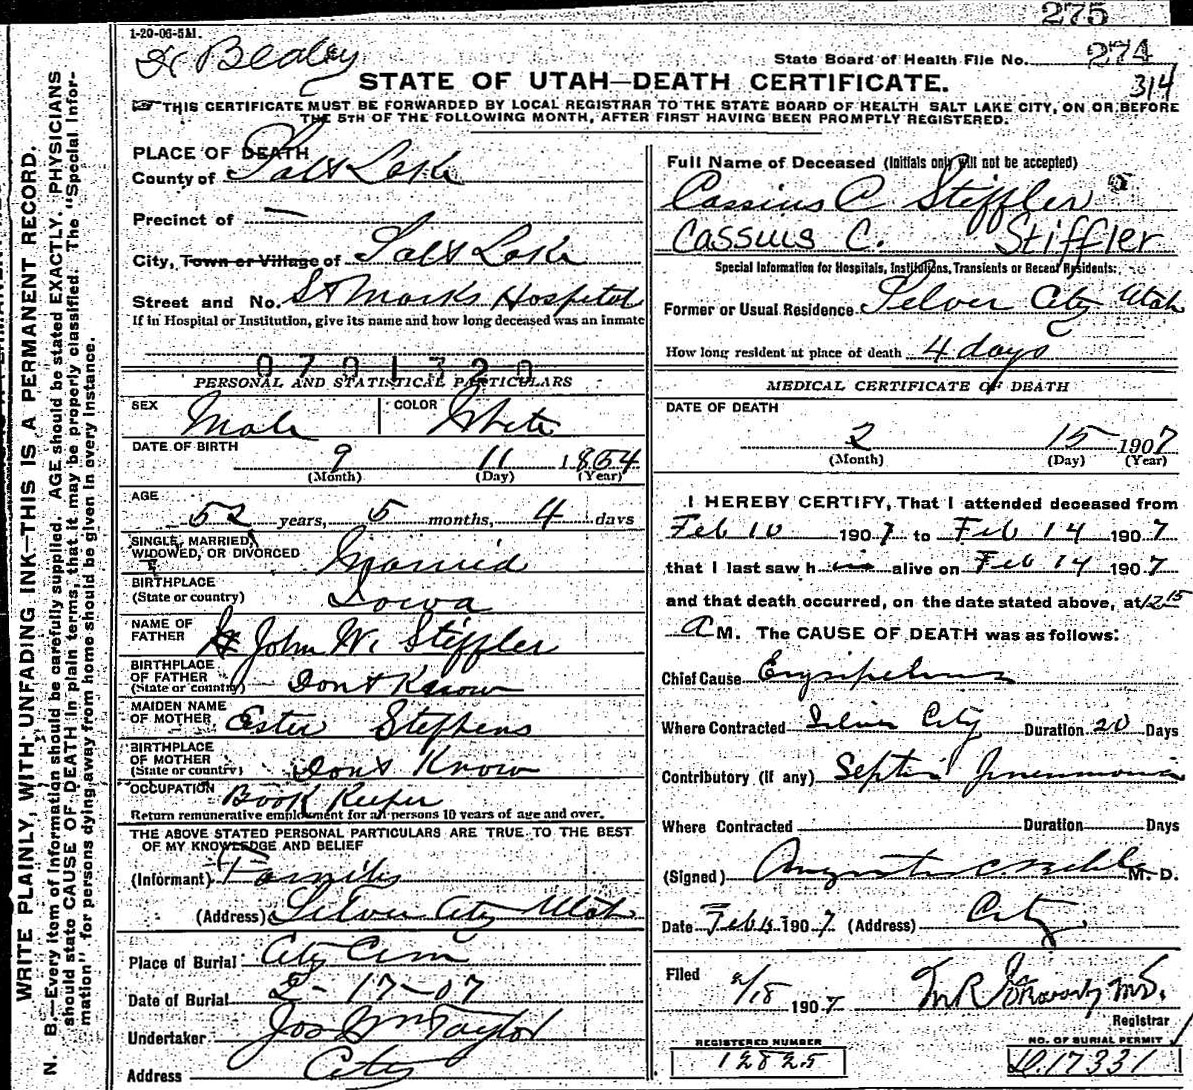 275
1-20-06-5M.
State Board of Health File No. 274
314
STATE OF UTAH—DEATH CERTIFICATE.
THIS CERTIFICATE MUST BE FORWARDED BY LOCAL REGISTRAR TO THE STATE BOARD OF HEALTH SALT LAKE CITY, ON OR BEFORE
THE 5TH OF THE FOLLOWING MONTH, AFTER FIRST HAVING BEEN PROMPTLY REGISTERED.
WRITE PLAINLY, WITH UNFADING INK—THIS IS A PERMANENT RECORD.
N. B.—Every item of information should be carefully supplied. AGE should be stated EXACTLY. PHYSICIANS
should state CAUSE OF DEATH in plain terms, that it may be properly classified. The "Special Infor-
mation" for persons dying away from home should be given in every instance.
PLACE OF DEATH
County of Salt Lake
Precinct of —
City, Town or Village of Salt Lake
Street and No. St Marks Hospital
If in Hospital or Institution, give its name and how long deceased was an inmate
0701320
PERSONAL AND STATISTICAL PARTICULARS
SEX Male COLOR White
DATE OF BIRTH
9 11 1854
(Month) (Day) (Year)
AGE
52 years, 5 months, 4 days
SINGLE, MARRIED,
WIDOWED, OR DIVORCED Married
BIRTHPLACE
(State or country) Iowa
NAME OF
FATHER John W. Stiffler
BIRTHPLACE
OF FATHER
(State or country) Dont Know
MAIDEN NAME
OF MOTHER Ester Stephens
BIRTHPLACE
OF MOTHER
(State or country) Dont Know
OCCUPATION Book Keeper
Return remunerative employment for all persons 10 years of age and over.
THE ABOVE STATED PERSONAL PARTICULARS ARE TRUE TO THE BEST
OF MY KNOWLEDGE AND BELIEF
(Informant) Family
(Address) Silver City Utah
Place of Burial City Cem
Date of Burial 2-17-07
Undertaker Jos Wm Taylor
Address City
Full Name of Deceased (Initials only will not be accepted)
Cassius C Stiffler
Cassius C. Stiffler
Special Information for Hospitals, Institutions, Transients or Recent Residents:
Former or Usual Residence Silver City Utah
How long resident at place of death 4 days
MEDICAL CERTIFICATE OF DEATH
DATE OF DEATH
2 15 1907
(Month) (Day) (Year)
I HEREBY CERTIFY, That I attended deceased from
Feb 10 1907 to Feb 14 1907
that I last saw him alive on Feb 14 1907
and that death occurred, on the date stated above, at 12 15
A M. The CAUSE OF DEATH was as follows:
Chief Cause Erysipelas
Where Contracted Silver City Duration 20 Days
Contributory (if any) Septic Pneumonia
Where Contracted Duration Days
(Signed) M. D.
Date Feb 15 1907 (Address) City
Filed 2/18 1907
Registrar
REGISTERED NUMBER
12825
NO. OF BURIAL PERMIT
D.17331